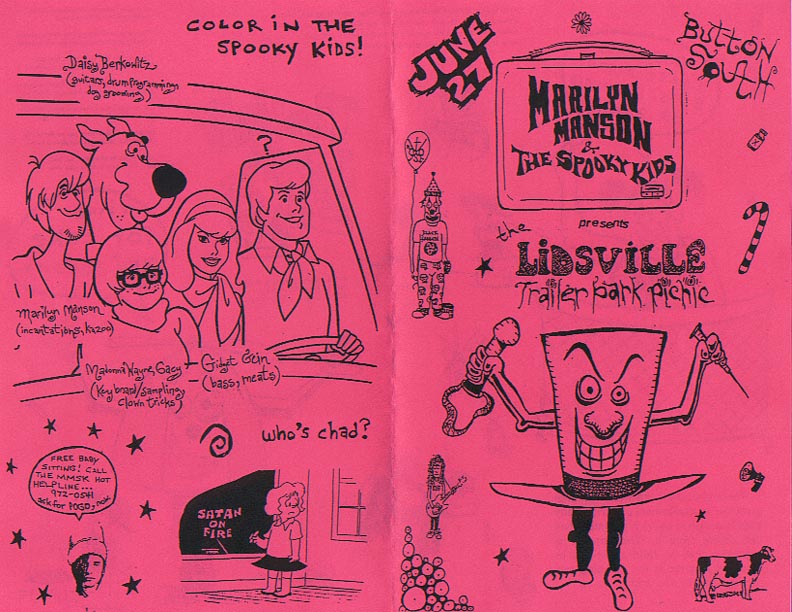 COLOR IN THE
SPOOKY KIDS!
Daisy Berkowitz
(guitars, drum programming
dog grooming)
?
Marilyn Manson
(incantations, kazoo)
Madonna Wayne Gacy
(keyboard/sampling
clown tricks)
Gidget Gein
(bass, meats)
who's chad?
FREE BABY
SITTING! CALL
THE MMSK HOT
HELPLINE...
972-0541
ask for POGO,
SATAN
ON
FIRE
JUNE
27
BUTTON
SOUTH
MARILYN
MANSON
&
THE SPOOKY KIDS
presents
the
LIDSVILLE
Trailer park picnic